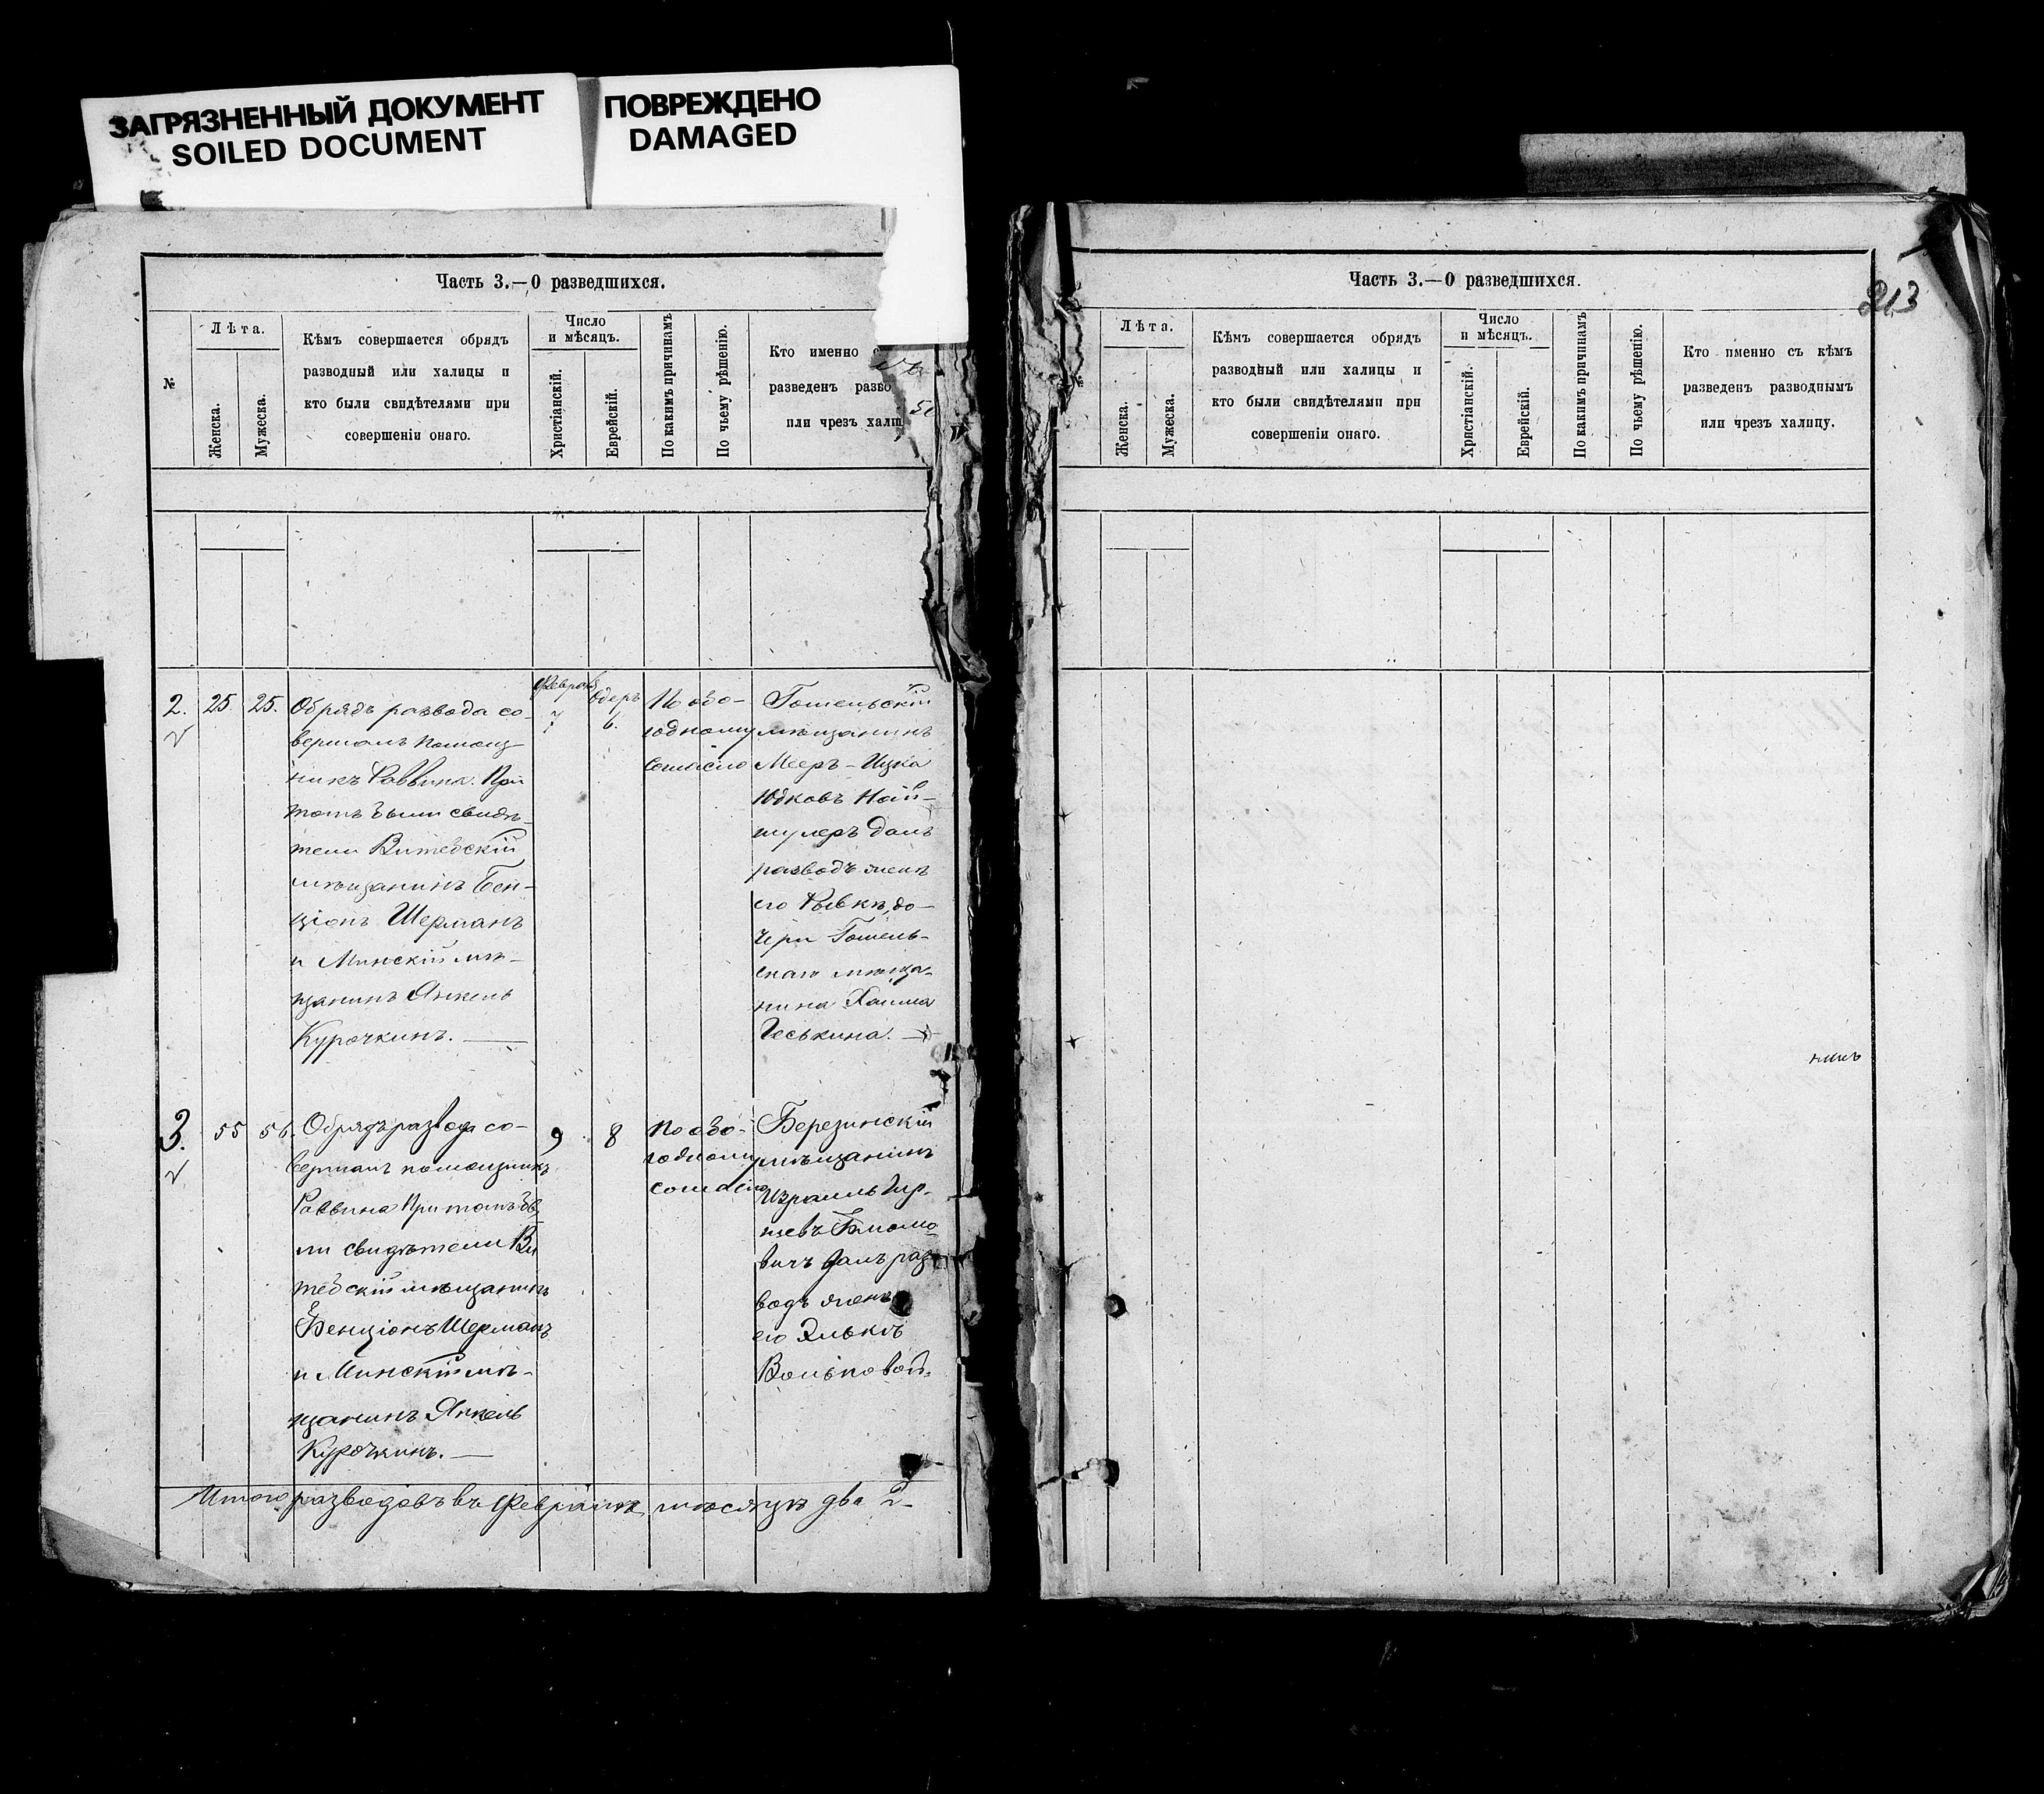 ЗАГРЯЗНЕННЫЙ ДОКУМЕНТ
SOILED DOCUMENT
ПОВРЕЖДЕНО
DAMAGED
Часть 3.—О разведшихся.
№
Лѣта.
Женска.
Мужеска.
Кѣмъ совершается обрядъ
разводный или халицы и
кто были свидѣтелями при
совершеніи онаго.
Число
и мѣсяцъ.
Христіанскій.
Еврейскій.
По какимъ причинамъ
По чьему рѣшенію.
Кто именно
разведенъ разво
или чрезъ халиц
2.
25
25.
Обрядъ развода со-
вершалъ помощ-
никъ Раввина. При
томъ были свидѣ-
тели Витебскій
мѣщанинъ Бен-
ціонъ Шерманъ
и Минскій мѣ-
щанинъ Янкель
Курочкинъ. —
Феврал
7
Адеръ
6.
По обо-
юдному
согласію
Гомельскій
мѣщанинъ
Мееръ-Ицка
Юдковъ Най-
шулеръ далъ
разводъ женѣ
его Рывкѣ, до-
чери Гомель-
скаго мѣща-
нина Хаима
Геськина. —
3.
55
56.
Обрядъ развода со-
вершалъ помощникъ
Раввина При томъ бы
ли свидѣтели Ви
тебскій мѣщанинъ
Бенціонъ Шерманъ
и Минскій мѣ-
щанинъ Янкель
Курочкинъ. —
9
8
По обо-
юдному
согласію
Березинскій
мѣщанинъ
Израиль Гир-
шевъ
вичъ далъ раз
водъ женѣ
его Элькѣ
Вольповой.
Итого разводовъ въ Февралѣ мѣсяцѣ два 2-
Часть 3.—О разведшихся.
213
Лѣта.
Женска.
Мужеска.
Кѣмъ совершается обрядъ
разводный или халицы и
кто были свидѣтелями при
совершеніи онаго.
Число
и мѣсяцъ.
Христіанскій.
Еврейскій.
По какимъ причинамъ
По чьему рѣшенію.
Кто именно съ кѣмъ
разведенъ разводнымъ
или чрезъ халицу.